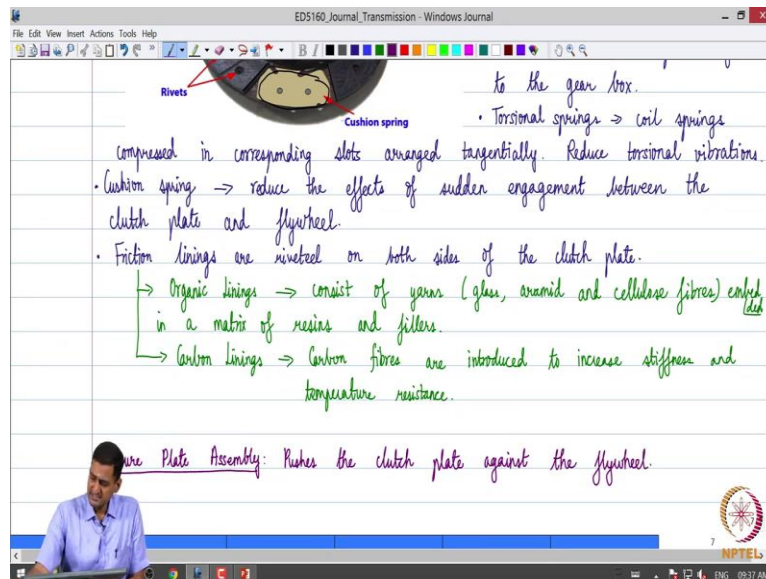 ED5160_Journal_Transmission - Windows Journal
File Edit View Insert Actions Tools Help
Rivets
Cushion spring
to the gear box.
• Torsional springs → coil springs
compressed in corresponding slots arranged tangentially. Reduce torsional vibrations.
• Cushion spring → reduce the effects of sudden engagement between the
clutch plate and flywheel.
• Friction linings are riveted on both sides of the clutch plate.
→ Organic Linings → consist of yarns (glass, aramid and cellulose fibres) embed
ded
in a matrix of resins and fillers.
→ Carbon Linings → Carbon fibres are introduced to increase stiffness and
temperature resistance.
ure Plate Assembly: Pushes the clutch plate against the flywheel.
7
NPTEL
ENG 09:37 AM